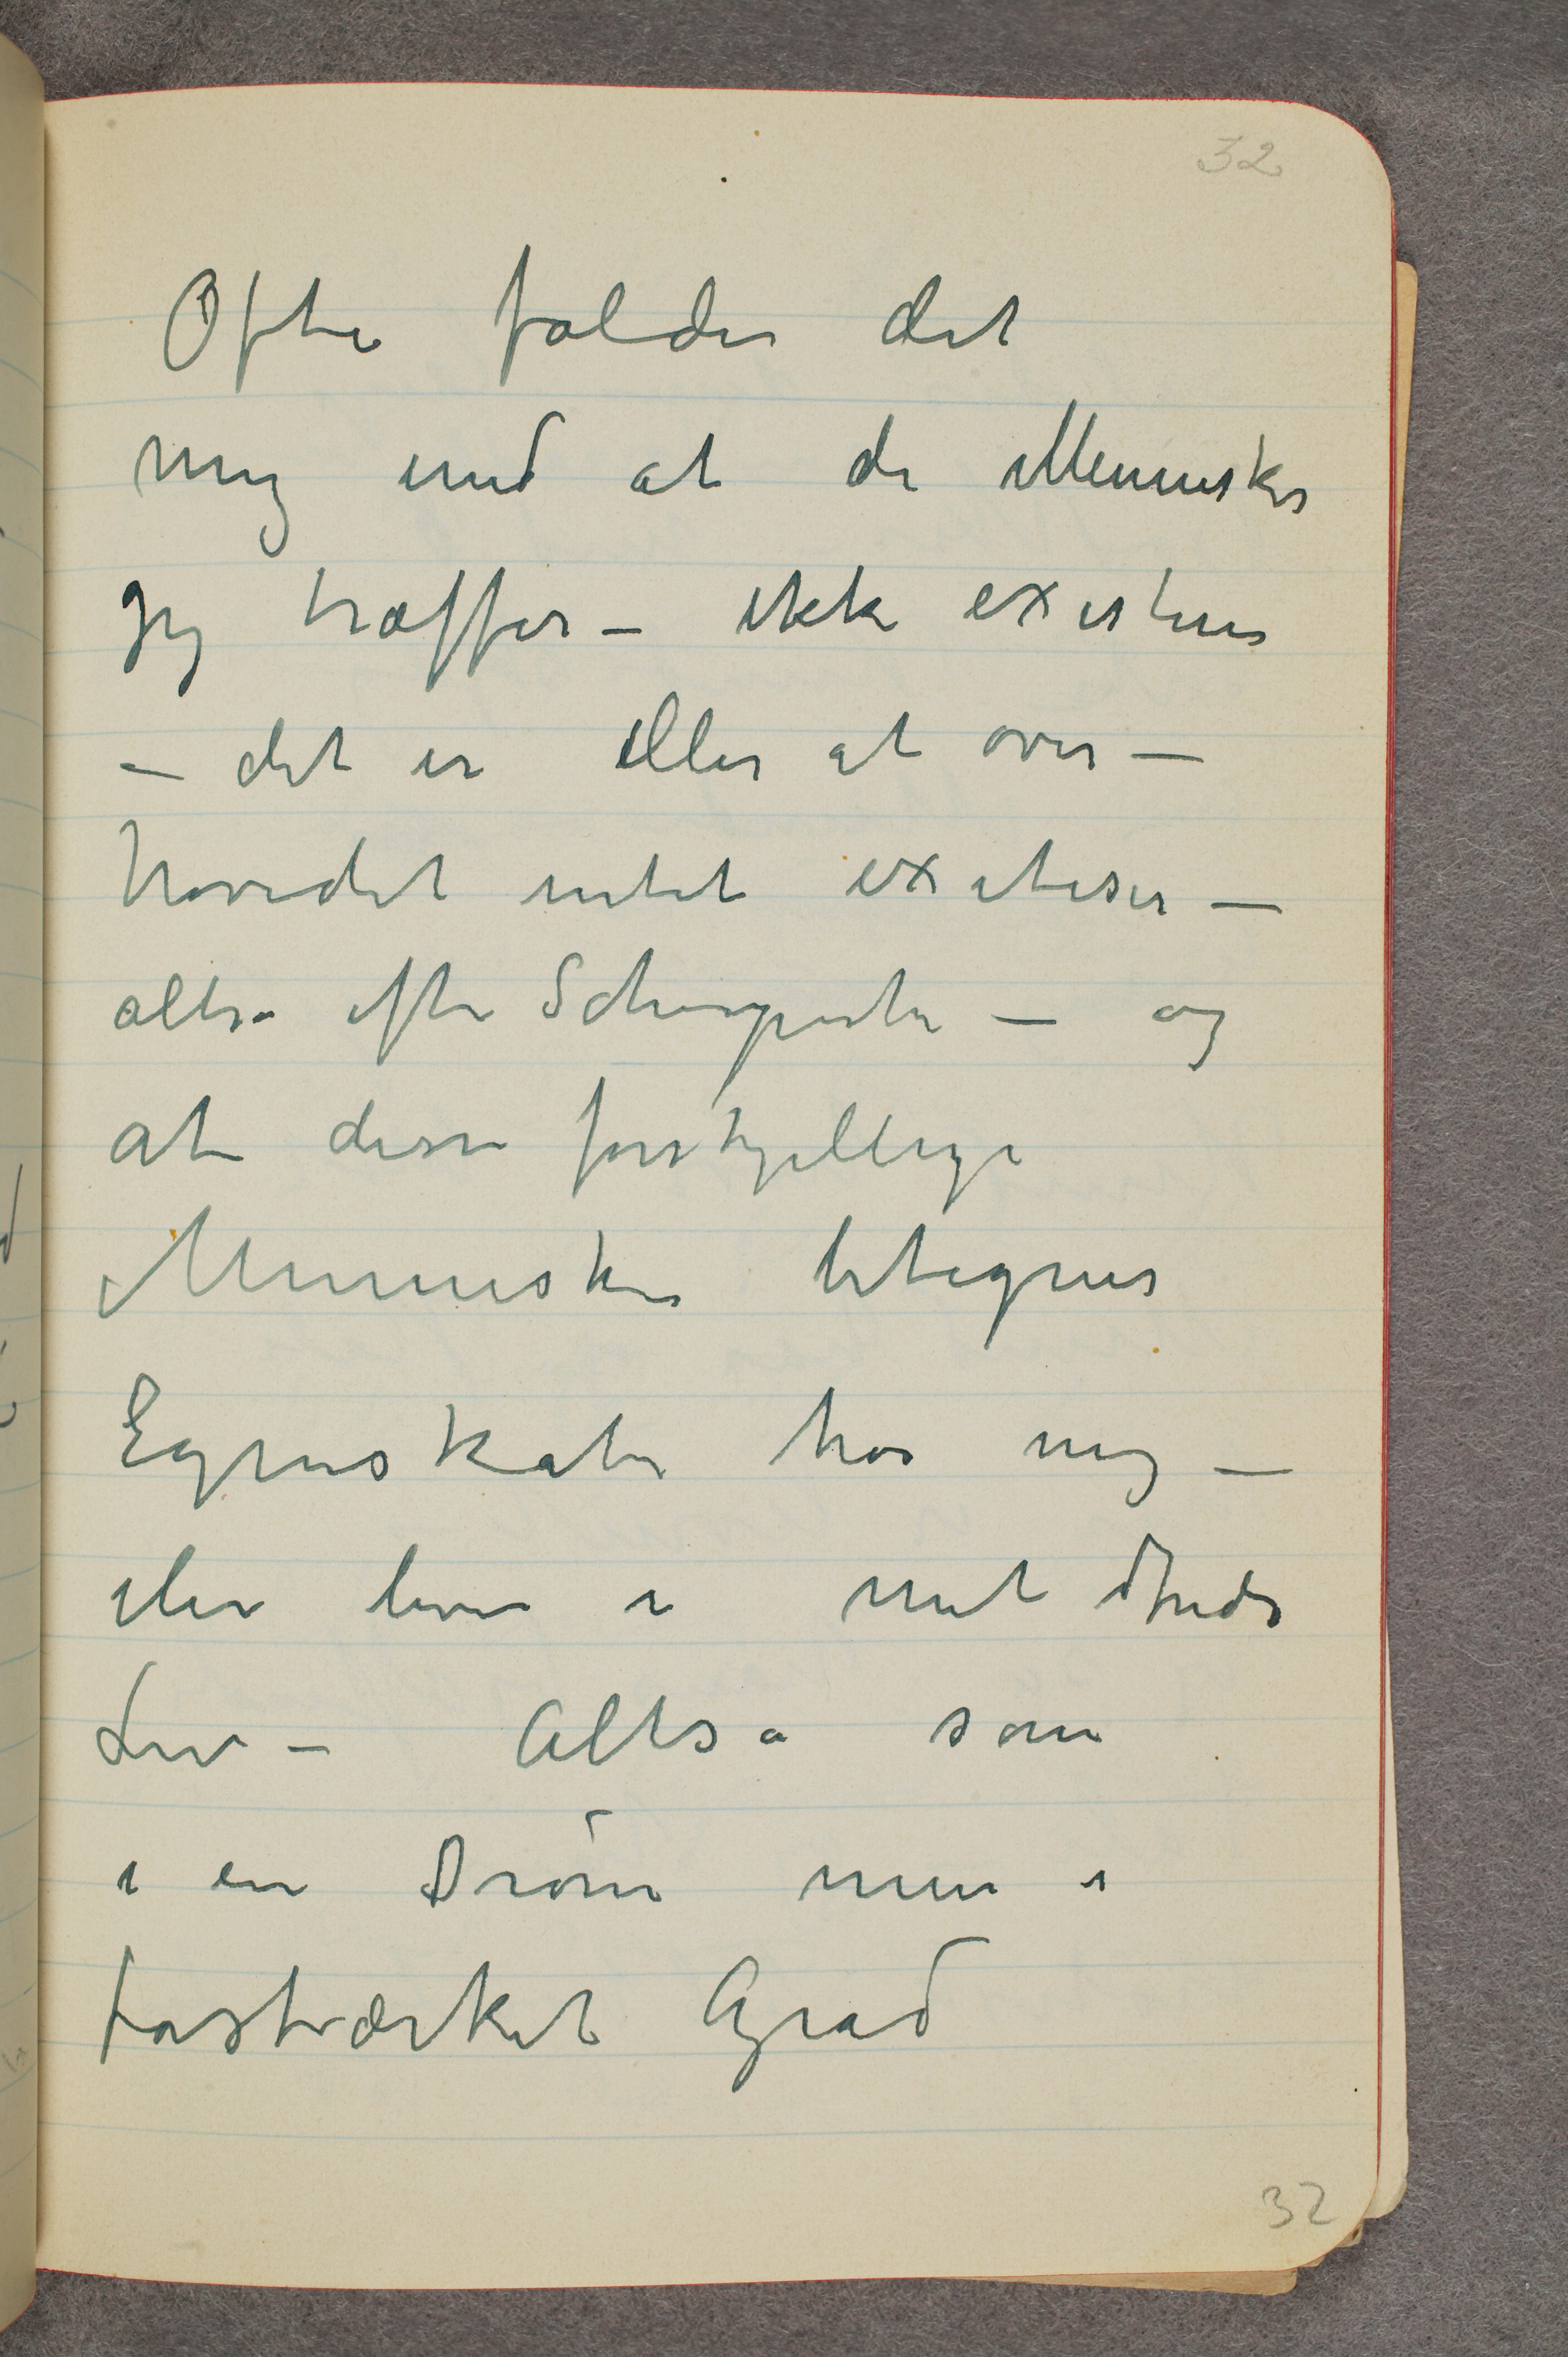 32
Ofte falder det
mig ind at de Mennesker
jeg træffer – ikke existerer
– det er eller at over–
hovedet intet existerer –
altså efter – og
at disse forskjellige
Mennesker betegner
Egenskaber hos mig –
eller lever i mit
Liv – Altså som
i en Drøm men i
forstærket Grad
32